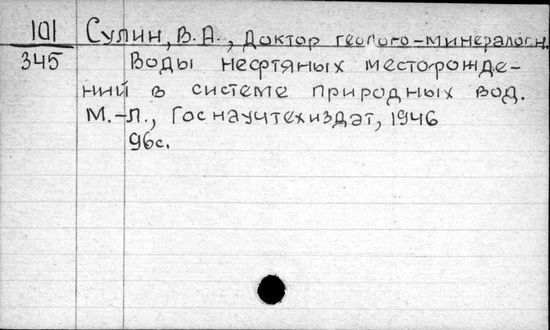 101 Сулин, В.А., Доктор геолого-минералог.н.
345 Воды нефтяных месторожде-
ний в системе природных вод.
М.-Л., Госнаучтехиздат, 1946
96с.